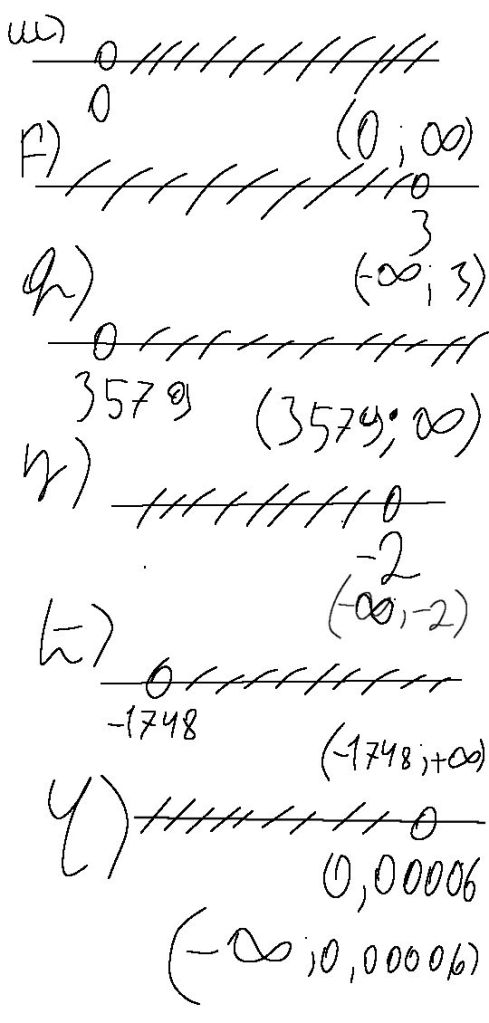 ա)
0
(0 ; ∞)
բ)
3
(-∞; 3)
գ)
3579
(3579; ∞)
դ)
-2
(-∞; -2)
ե)
-1748
(-1748; +∞)
զ)
0,00006
(-∞; 0,00006)